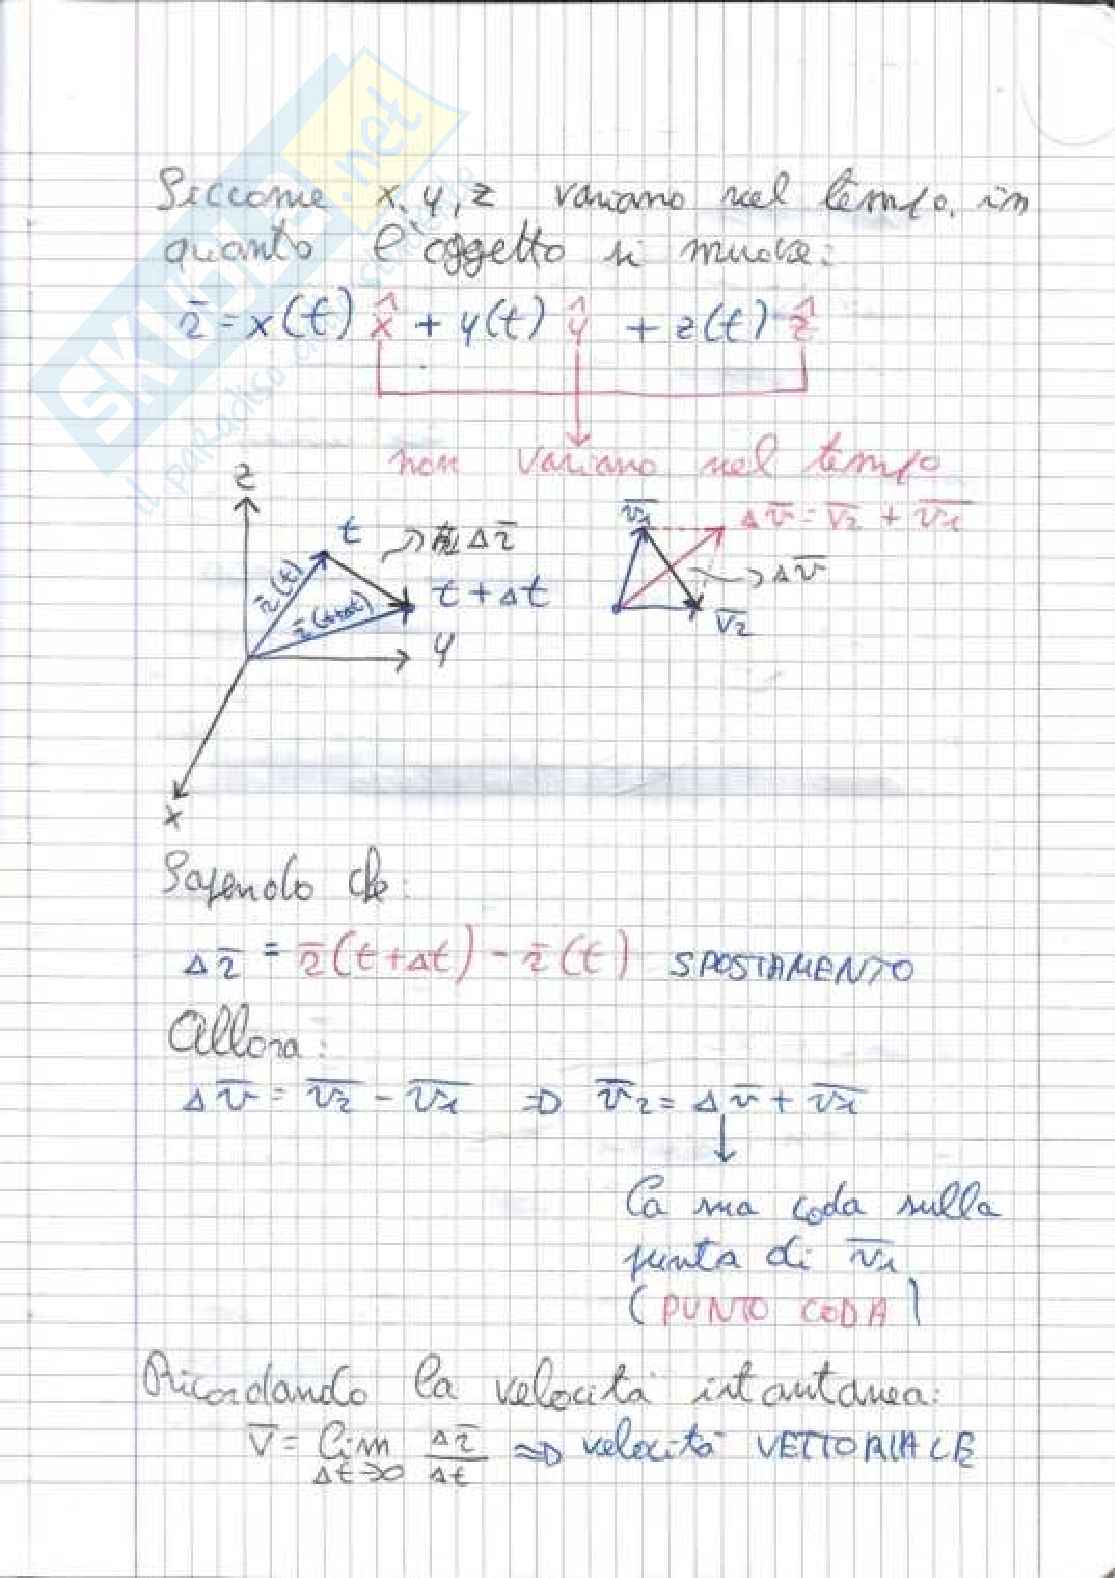 SKUOLA.net
il paradiso dello studente
Siccome x, y, z variano nel tempo, in
quanto l'oggetto si muove:
r̄ = x(t) x̂ + y(t) ŷ + z(t) ẑ
non variano nel tempo
z
t
Δr̄
r̄(t)
r̄(t+Δt)
t + Δt
y
x
v̄₁
Δv̄ = v̄₂ + v̄₁
Δv̄
v̄₂
Sapendo che:
Δr̄ = r̄(t+Δt) - r̄(t) SPOSTAMENTO
Allora:
Δv̄ = v̄₂ - v̄₁ ⇒ v̄₂ = Δv̄ + v̄₁
la sua coda sulla
punta di v̄₁
(PUNTO CODA)
Ricordando la velocità intantanea:
v̄ = lim Δt→0 Δr̄/Δt ⇒ velocità VETTORIALE